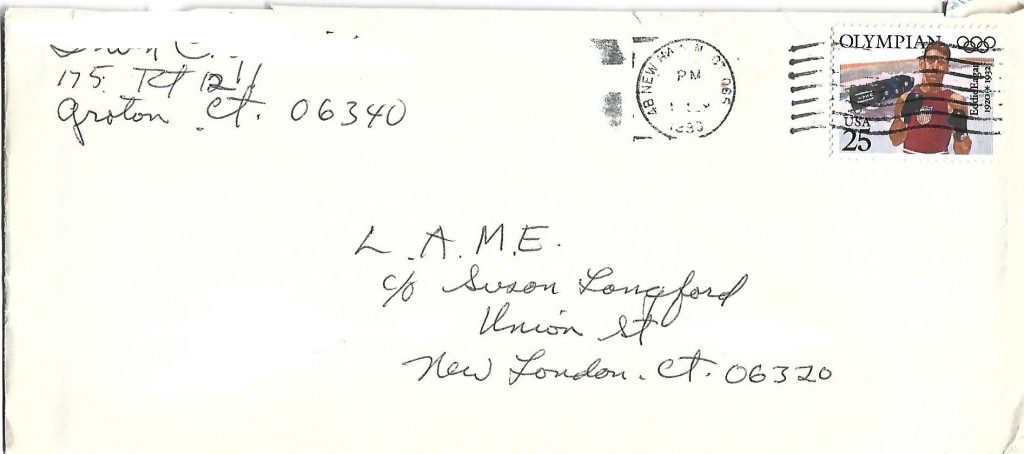 175 Rt 12
Groton Ct. 06340
NEW HA
PM
065
OLYMPIAN
Eddie Eagan
1920 1932
USA
25
L.A.M.E.
c/o Suson Longford
Union St
New London. Ct. 06320